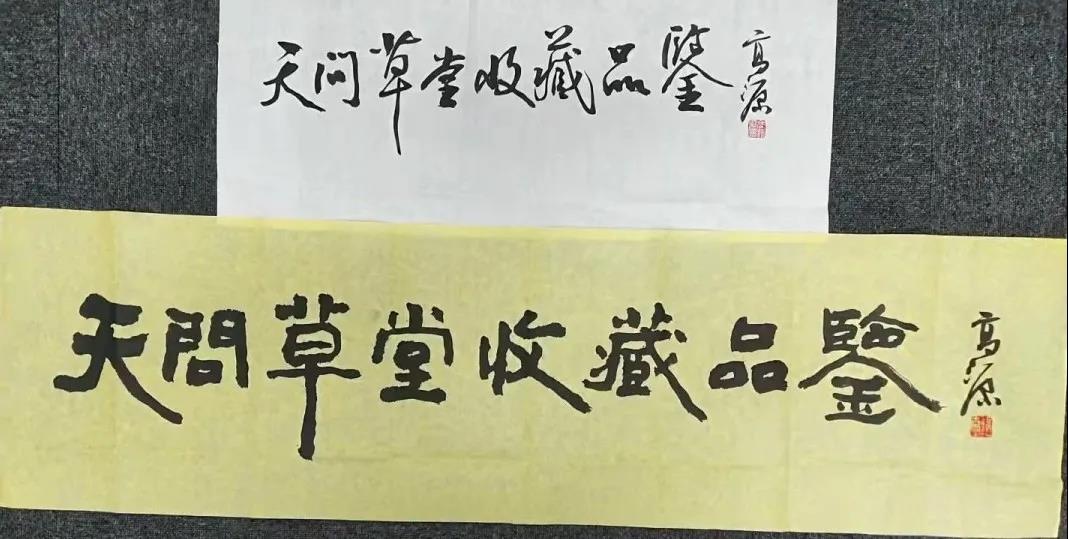 天问草堂收藏品鑒 高源
天問草堂收藏品鑒 高源